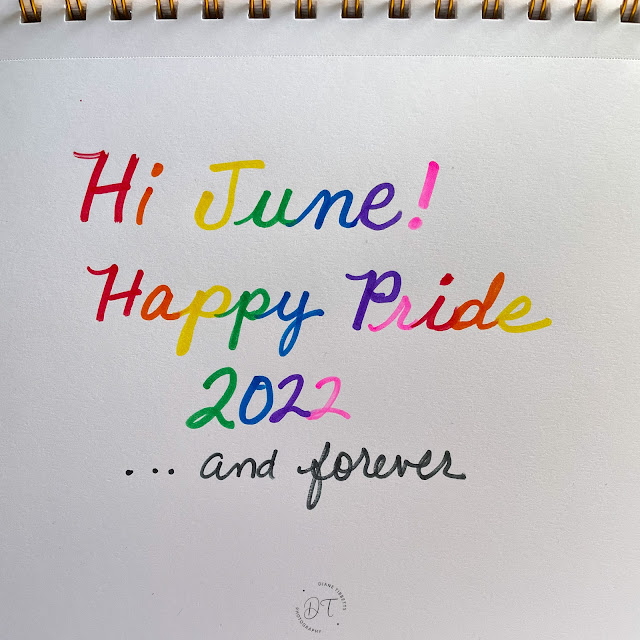 Hi June!
Happy Pride
2022
... and forever
DIANE TIBBETTS
DT
PHOTOGRAPHY